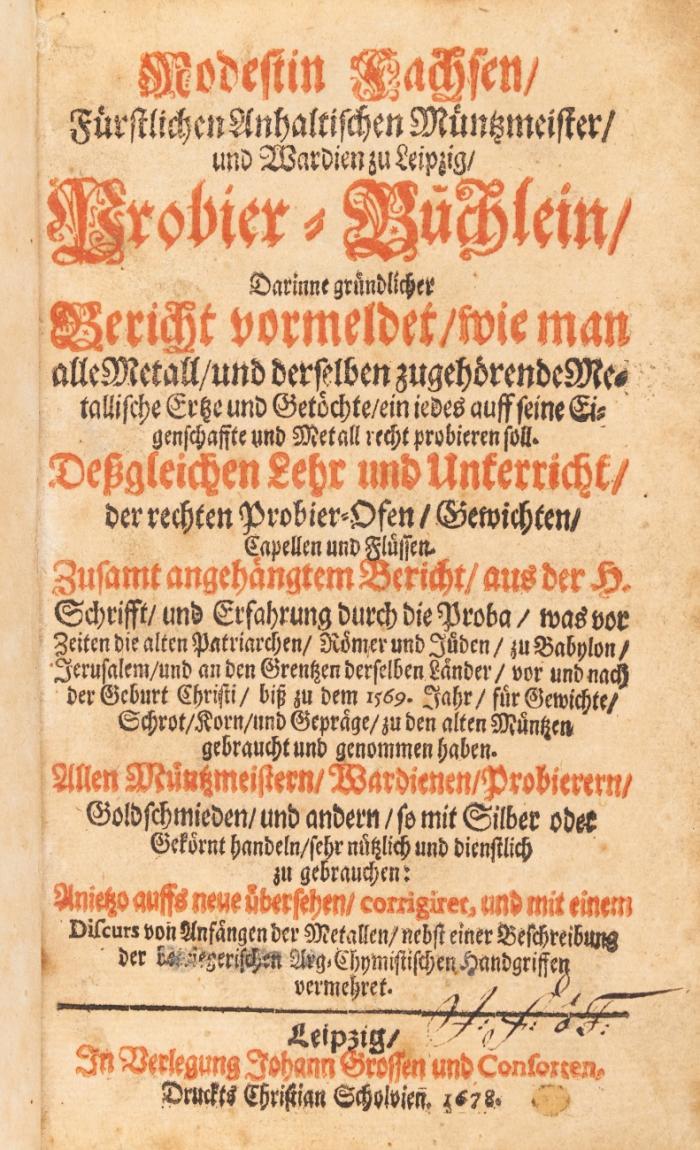 Modestin Fachsen/
Fürstlichen Anhaltischen Müntzmeister/
und Wardien zu Leipzig/
Probier-Büchlein/
Darinne gründlicher
Bericht vormeldet/wie man
alle Metall/und derselben zugehörende Me-
tallische Ertze und Getöchte/ein iedes auff seine Ei-
genschaffte und Metall recht probieren soll.
Deßgleichen Lehr und Unterricht/
der rechten Probier-Ofen/ Gewichten/
Capellen und Flüssen.
Zusamt angehängtem Bericht/ aus der H.
Schrifft/ und Erfahrung durch die Proba/ was vor
Zeiten die alten Patriarchen/ Römer und Jüden/ zu Babylon/
Jerusalem/und an den Grentzen derselben Länder/ vor und nach
der Geburt Christi/ biß zu dem 1569. Jahr/ für Gewichte/
Schrot/Korn/und Gepräge/zu den alten Müntzen
gebraucht und genommen haben.
Allen Müntzmeistern/ Wardienen/Probierern/
Goldschmieden/und andern/so mit Silber oder
Gekörnt handeln/sehr nützlich und dienstlich
zu gebrauchen:
Anietzo auffs neue übersehen/ corrigiret, und mit einem
Discurs von Anfängen der Metallen/ nebst einer Beschreibung
der Arg-Chymistischen Handgriffen
vermehret.
Leipzig/
In Verlegung Johann Grossen und Consorten.
Druckts Christian Scholvien. 1678.